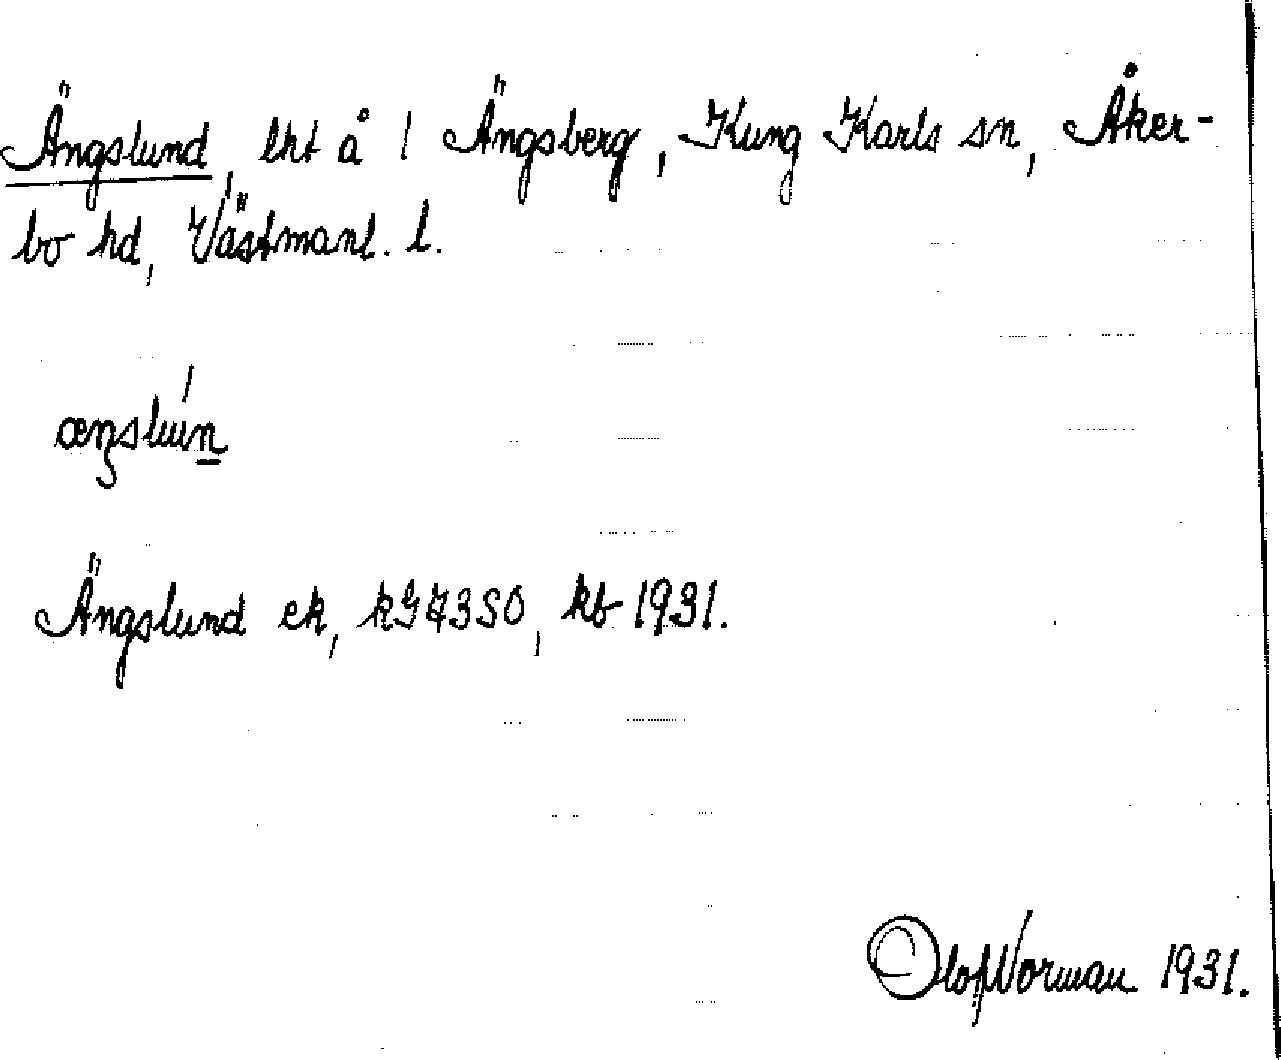 Ängslund, lht å 1 Ängsberg, Kung Karls sn, Åker-
bo hd, Västmanl. l.
æŋslún
Ängslund ek, kG73SO, kb 1931.
Olof Norman 1931.